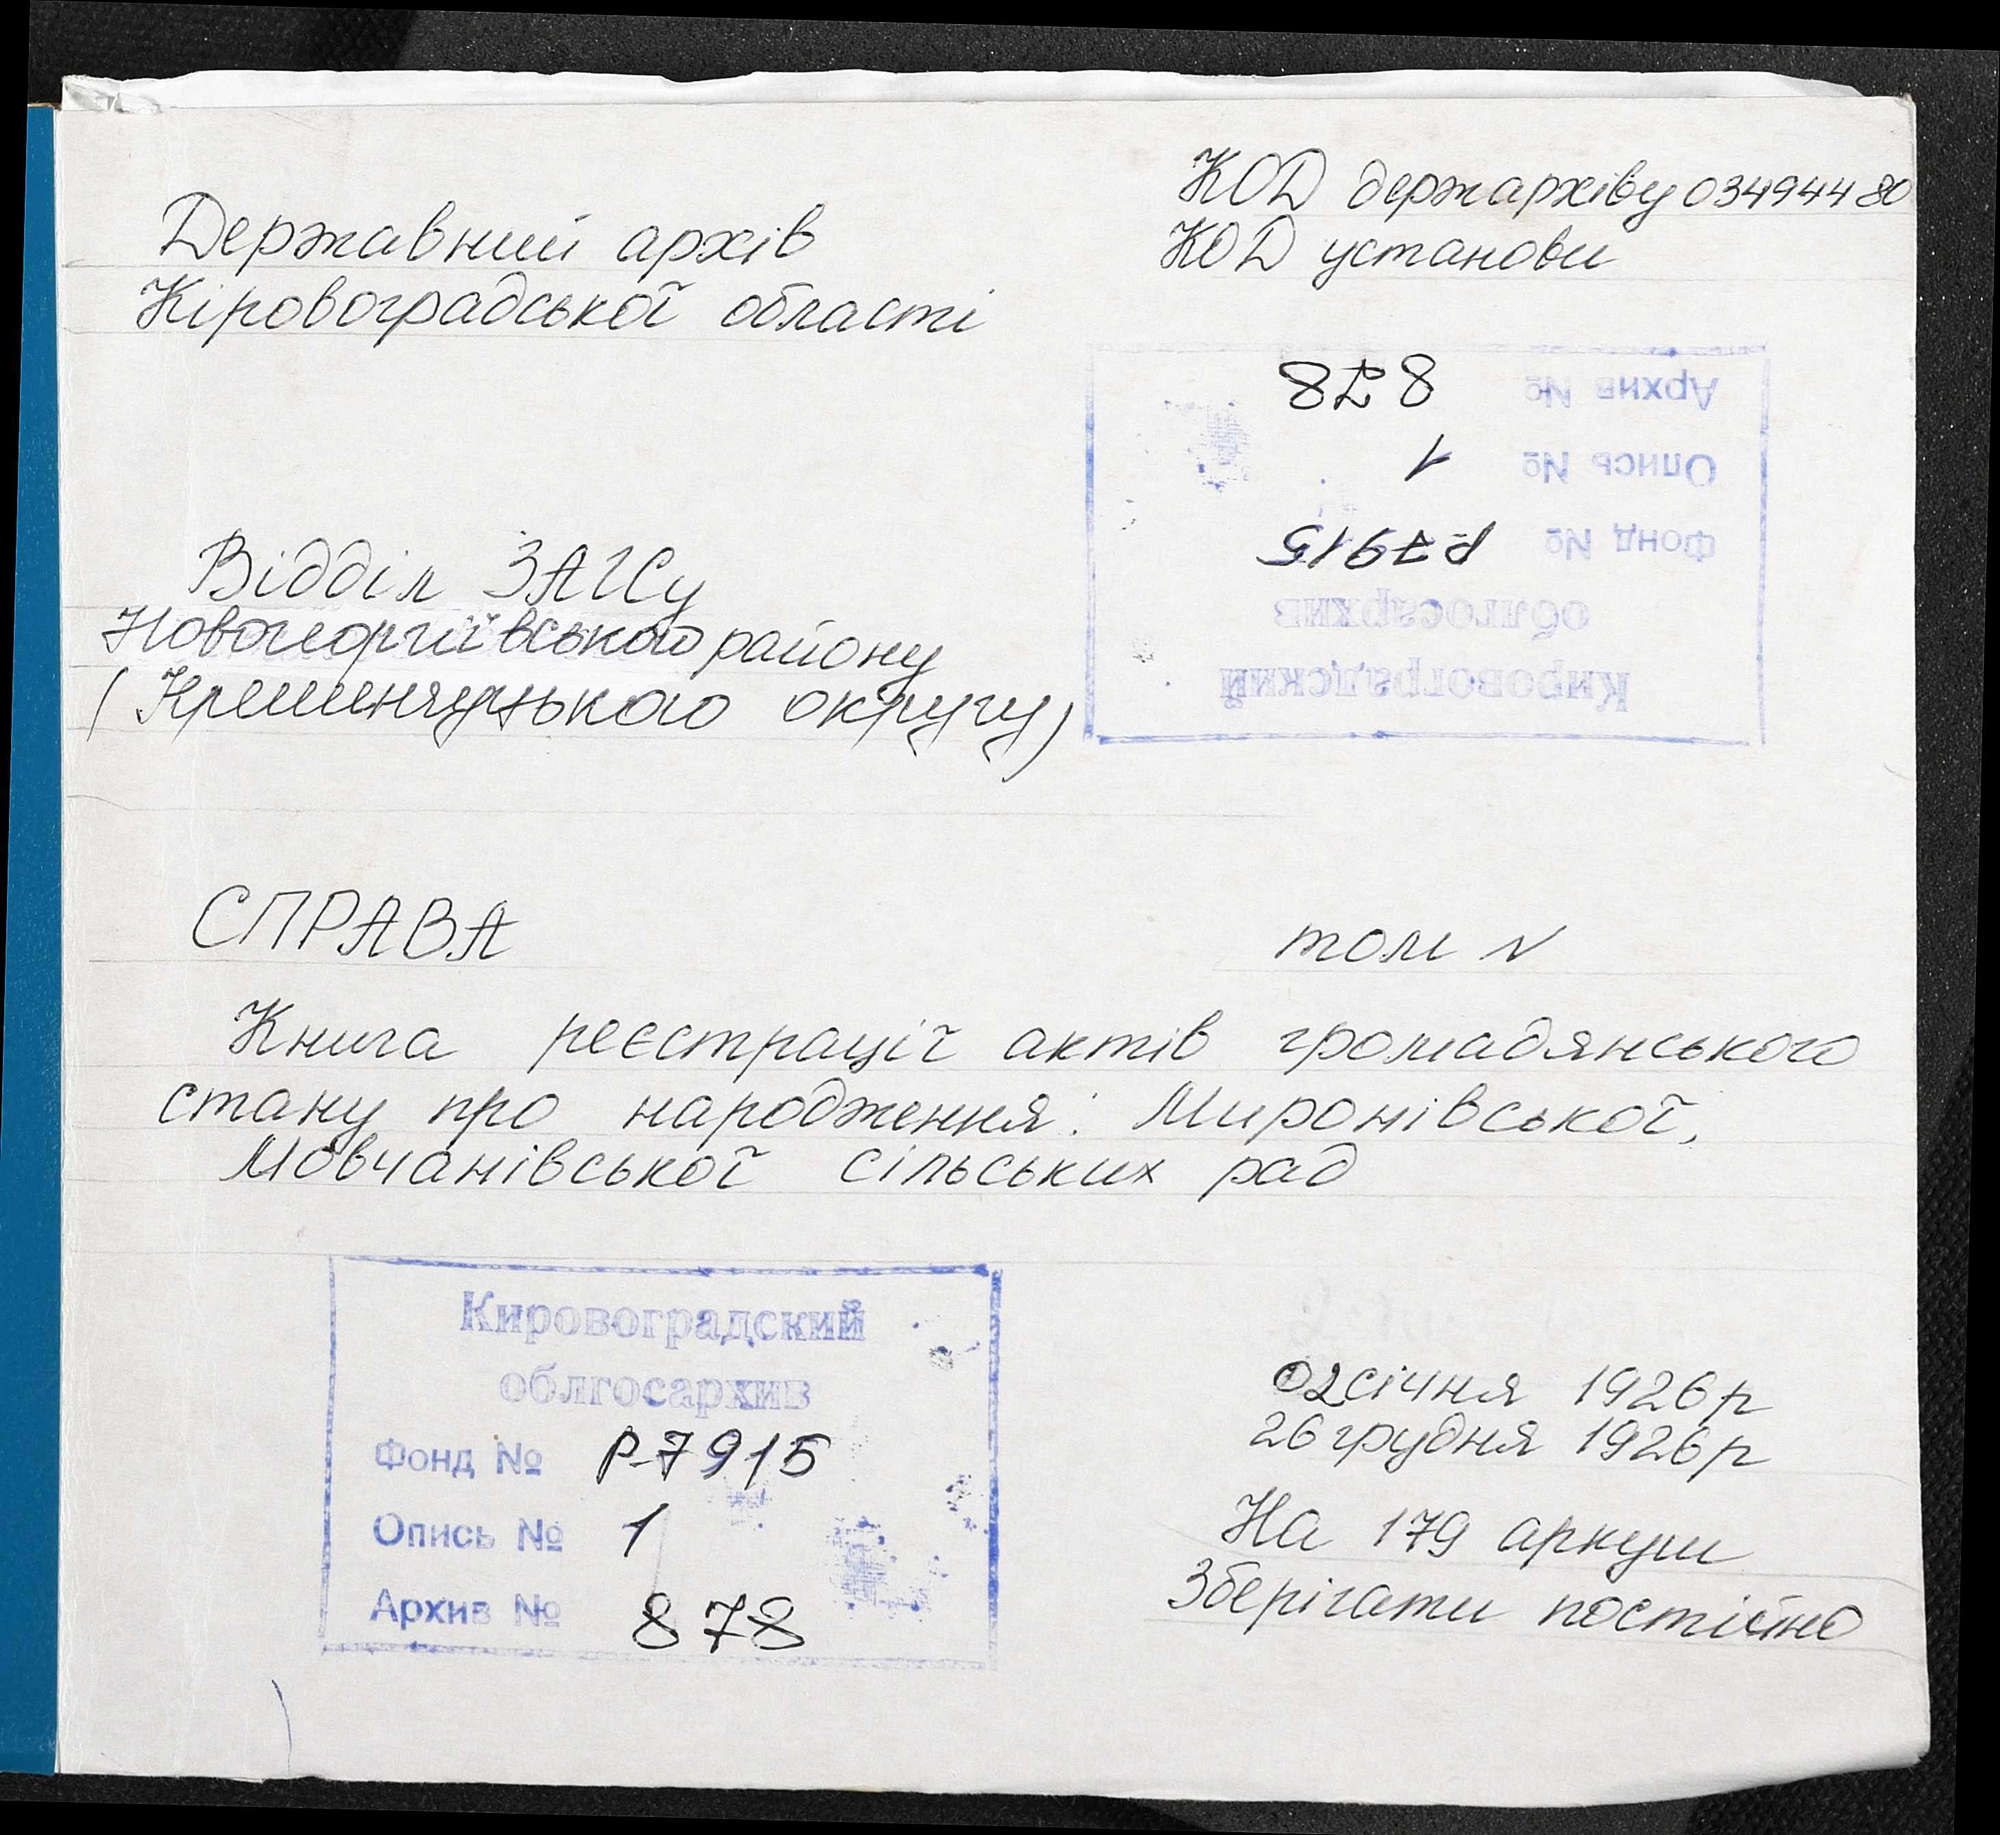 КОД держархіву 03494480
КОД установи
Державний архів
Кіровоградської області
Кировоградский
облгосархив
Фонд № Р-7915
Опись № 1
Архив № 878
Відділ ЗАГСу
Новогеоргіївського району
(Кременчуцького округу)
СПРАВА том N
Книга реєстрації актів громадянського
стану про народження: Миронівської,
Мовчанівської сільських рад
Кировоградский
облгосархив
Фонд № Р-7915
Опись № 1
Архив № 878
02 січня 1926 р
26 грудня 1926 р
На 179 аркуш
Зберігати постійно